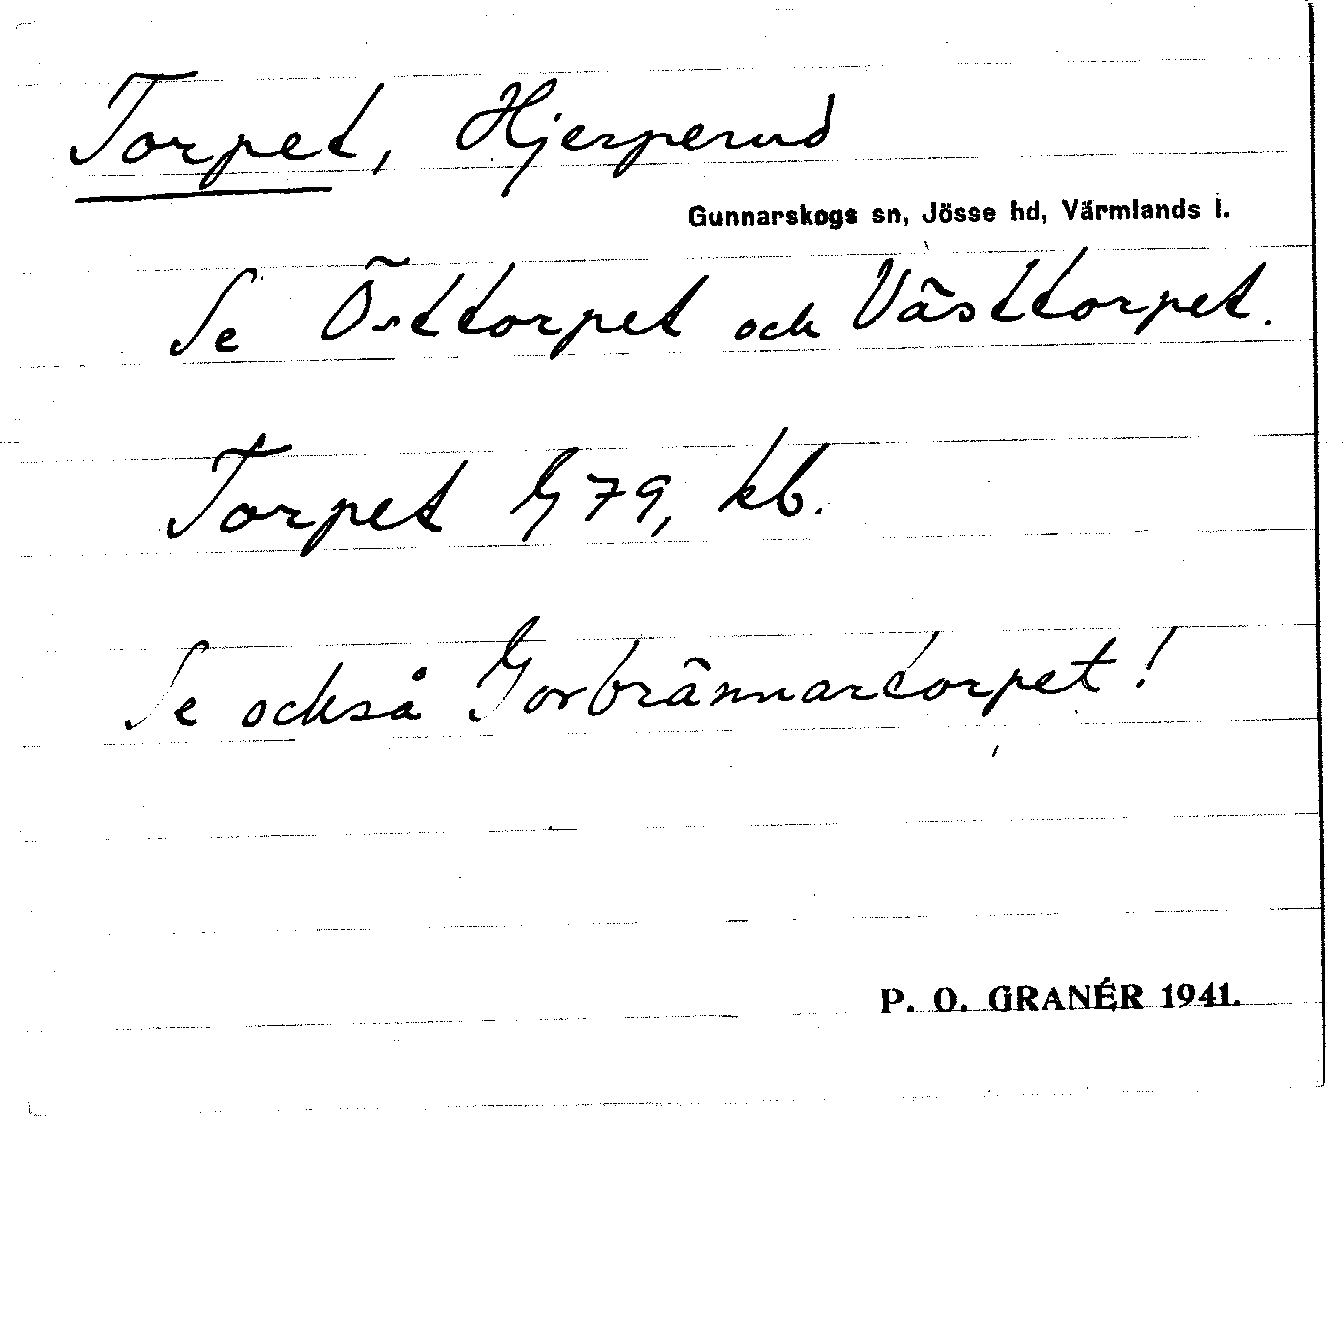 Torpet, Hjerperud
Gunnarskogs sn, Jösse hd, Värmlands l.
Se Östtorpet och Västtorpet.
Torpet G 79, kb.
Se också Gorbrännartorpet!
P. O. GRANÉR 1941.